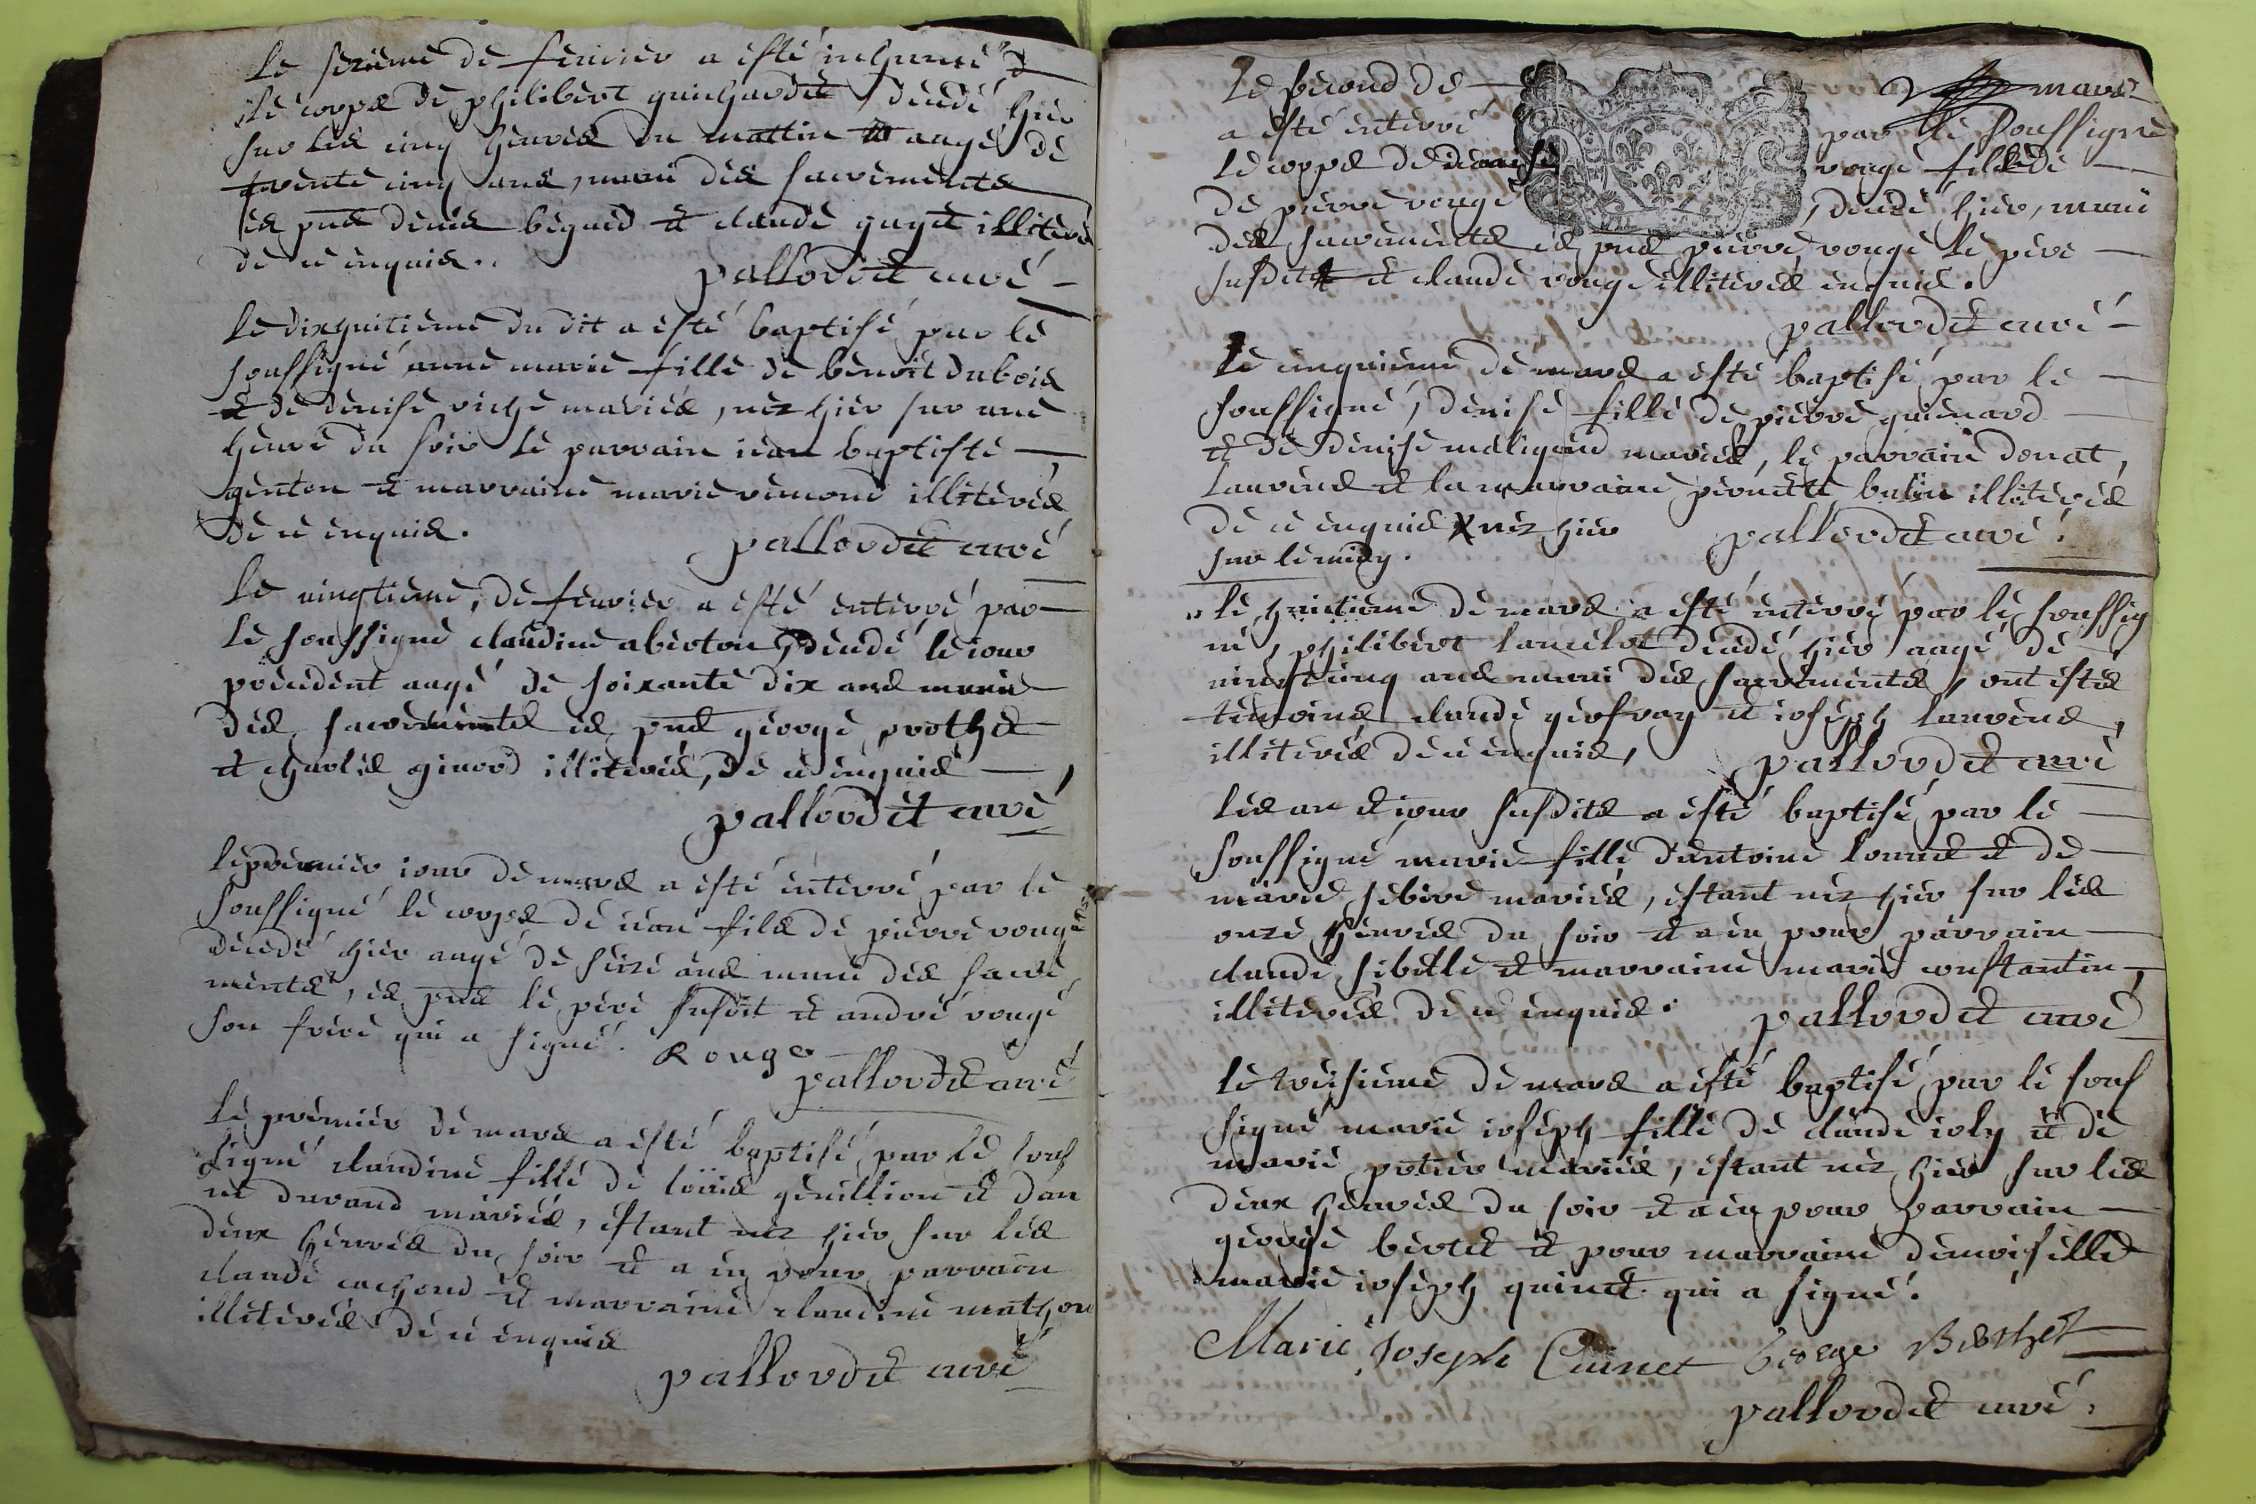 Le sezieme de fevrier a esté inhumé
le corps de philibert guichardet decedé hier
sur les cinq heures du mattin aagé de
trente cinq ans, muni des sacrements
es pnts denis begaud et claude guyt illiteré
de ce enquis.
pallordet curé
Le dixhuitieme du dit a esté baptisé par le
soussigné anne marie fille de benoit dubois
et de denise riche mariés, nez hier sur une
heure du soir le parrain jean baptiste
genton et marraine marie remond illiterés
de ce enquis.
pallordet curé
Le vingtieme, de fevrier a esté enterré par
le soussigné claudine aberton, decedé le jour
precedent aagé de soixante dix ans munie
des sacrements es pnts george prothet
et charles girord illiterés, de ce enquis
pallordet curé
Le premier jour de mars a esté enterré par le
soussigné le corps de jean fils de pierre rouge
decedé hier aagé de seize ans muni des sacre
ments, es pnts le pere susdit et andré rouge
son frere qui a signé. Rouge
pallordet curé
Le premier de mars a esté baptisé par le sous
signé claudine fille de loüis genillion et dan
ne durand mariés, estant nez hier sur les
deux heures du soir et a eu pour parrain
claude cachond et marraine claudine mathon
illiterés de ce enquis
pallordet curé
Le second de mars
a esté enterré par le soussigné
le corps de denise rouge fille de
de pierre rouge, decedé hier, muni
des sacrements es pnts pierre rouge le pere
susdit et claude rouge illiterés enquis.
pallordet curé
Le cinquieme de mars a esté baptisé par le
soussigné, denise fille de pierre guienard
et de denise maligand mariés, le parrain donat,
laurens et la marraine pernette illiterés
de ce enquis X nez hier pallordet curé.
sur le midy.
Le huitieme de mars a esté enterré par le soussig
né, philibert lancelot decedé hier aagé de
vingt cinq ans muni des sacrements, ont estés
temoins claude geofray et joseph laurens,
illiterés de ce enquis, pallordet curé
Les an et jour susdits a esté baptisé par le
soussigné marie fille dantoine et de
marie sebire mariés, estant nez hier sur les
onze heures du soir et a eu pour parrain
claude sibelle et marraine marie constantin,
illiterés de ce enquis. pallordet curé
Le treisieme de mars a esté baptisé par le sous
signé marie joseph fille de claude joly et de
marie potier mariés, estant nez hier sur les
deux heures du soir et a eu pour parrain
george bertet et pour marraine demoiselle
marie joseph quinet qui a signé.
Marie Joseph Cuinet George Berthet
pallordet curé.